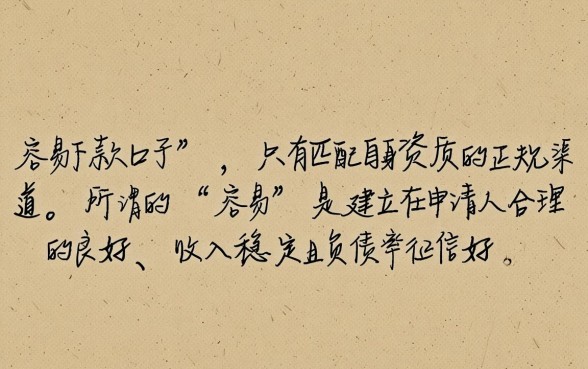 容易下款口子”，只有匹配自身资质的正规渠
道。所谓的“容易”是建立在申请人合理
的良好、收入稳定且负债率征信好。